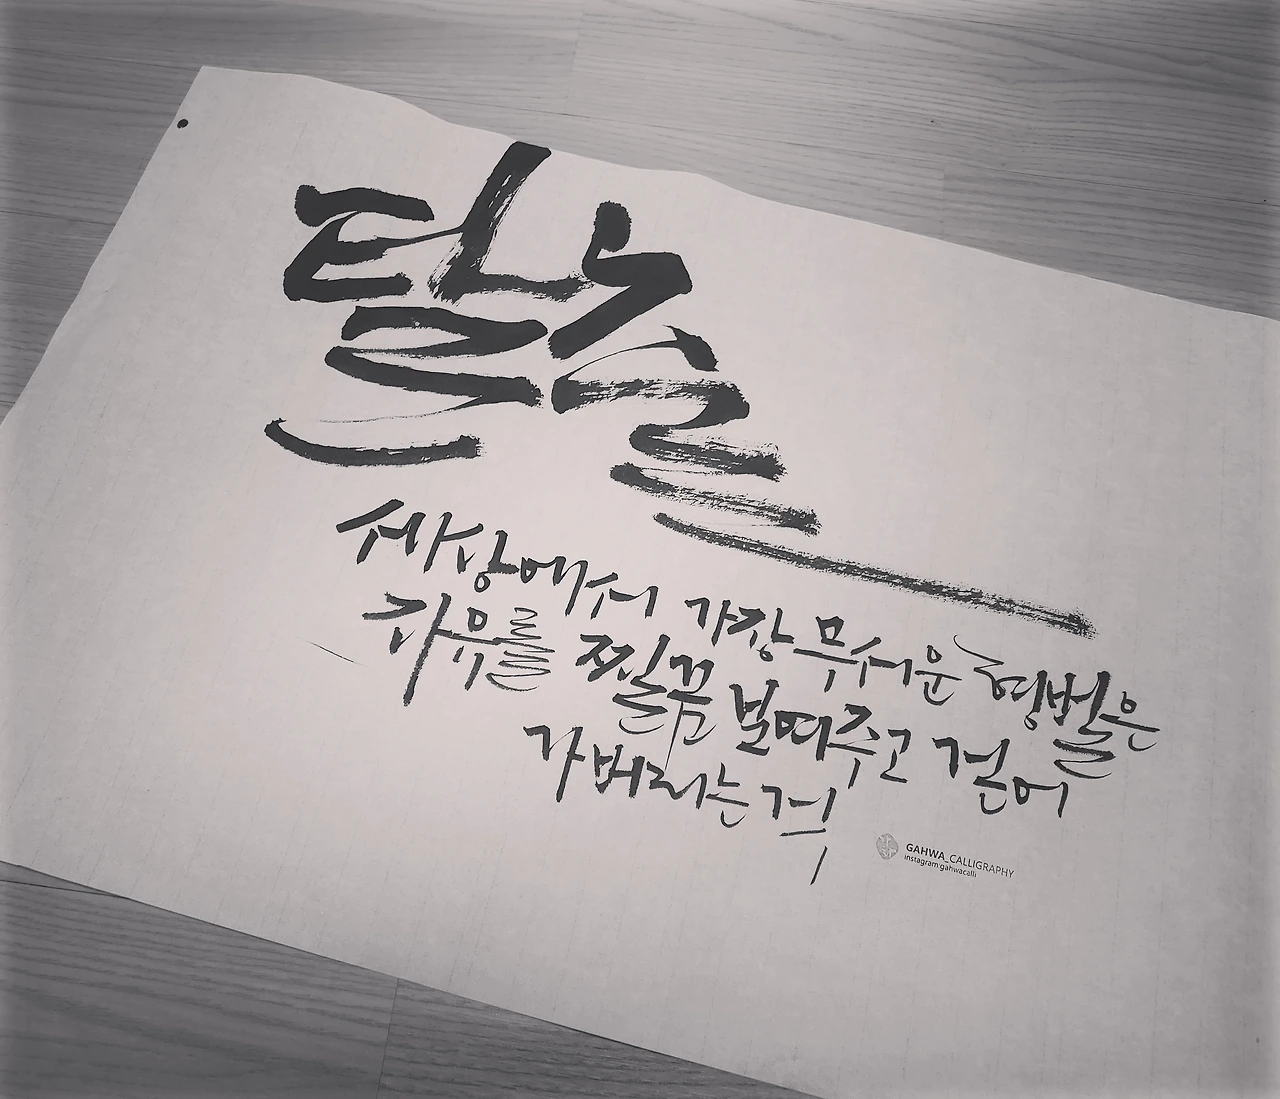 탈출
세상에서 가장 무서운 형벌은
자유를 찔끔 보여주고 걷어
가버리는 것
GAHWA_CALLIGRAPHY
instagram gahwacalli